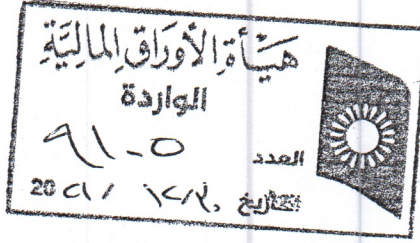 هيأة الأوراق المالية
الواردة
العدد ٩١٠٥
التاريخ ١٢/٣٠ / 20٢١